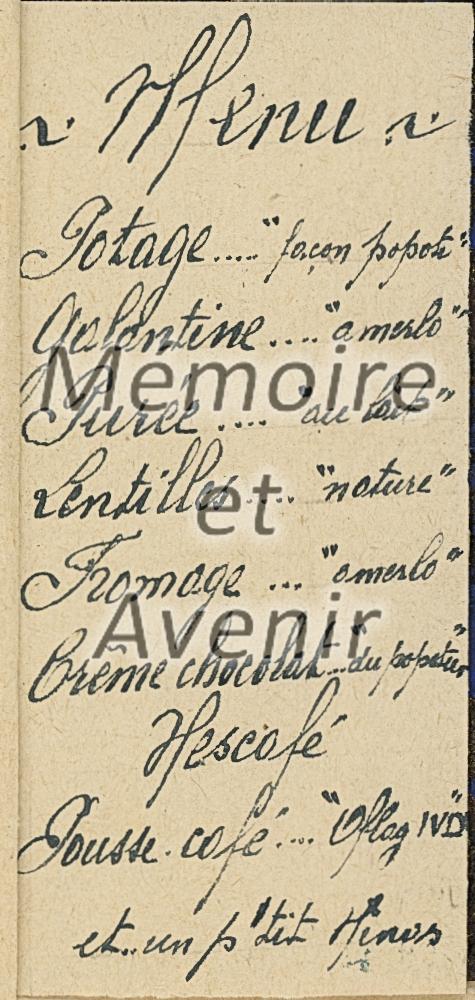 Menu
Potage ..... "façon popote"
Galantine .... "amerlo"
Purée .... "au lait"
Lentilles .... "nature"
Fromage ... "amerlo"
Crème chocolat ... "du popotier"
Nescafé
Pousse-café .... "Oflag IVD"
et..un p'tit
Mémoire
et
Avenir